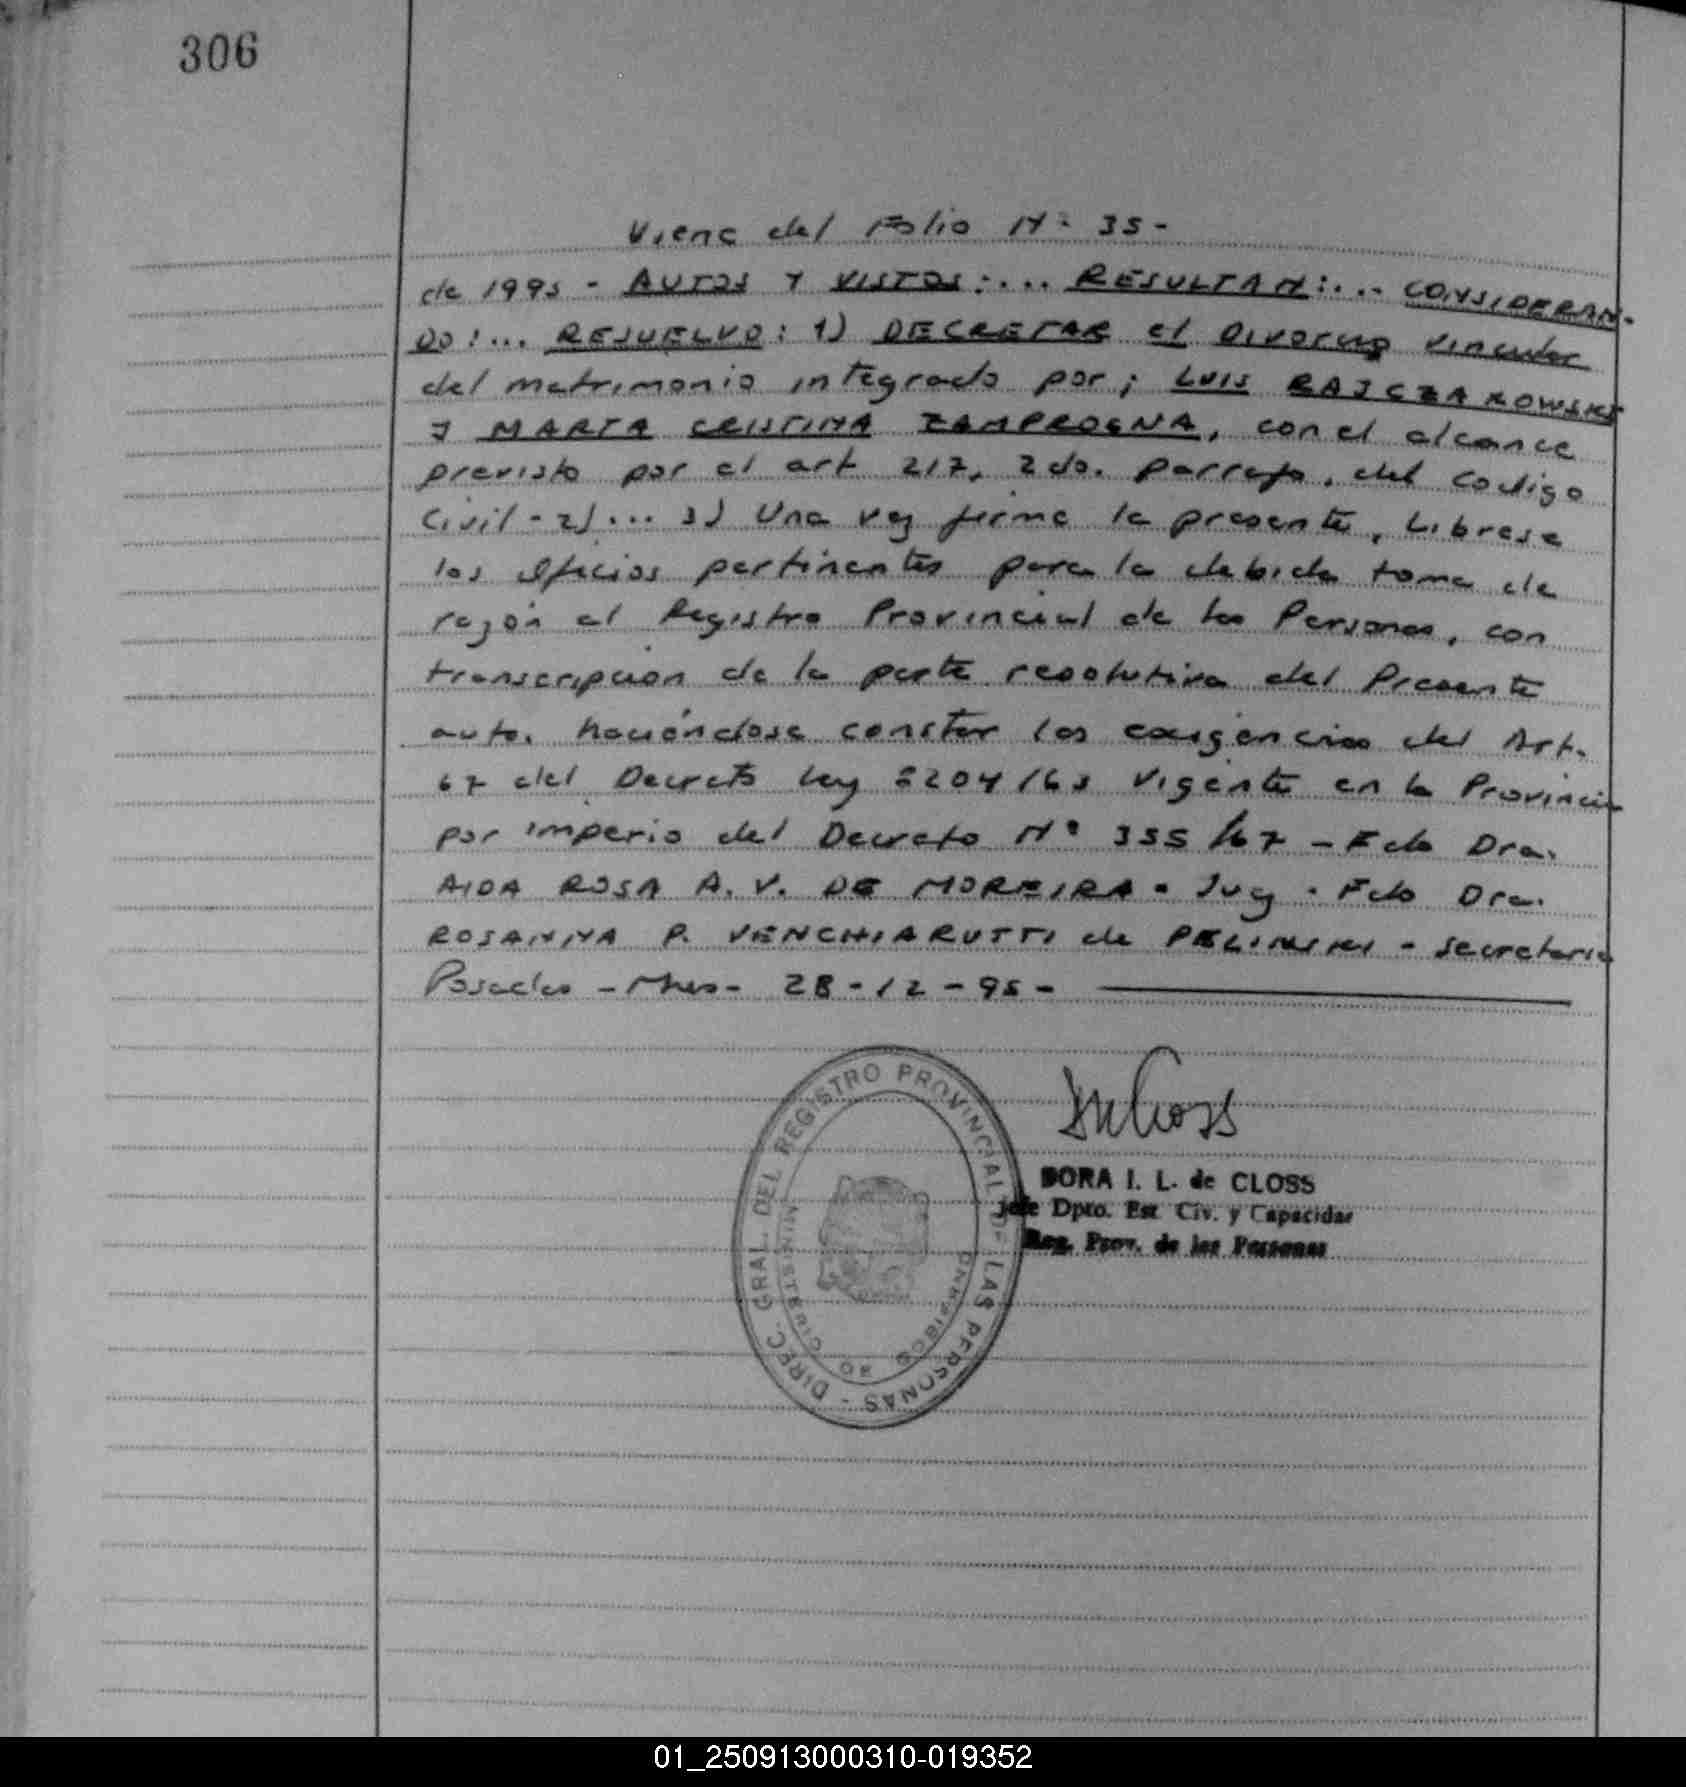 306
Viene del Folio Nº 35-
de 1995 - AUTOS Y VISTOS:... RESULTAN:... CONSIDERAN-
DO:... RESUELVO: 1) DECRETAR el Divorcio vincular
del matrimonio integrado por; LUIS RAJCZAKOWSKI
y MARTA CRISTINA ZAMPROGNA, con el alcance
previsto por el art 217, 2do. parrafo, del Codigo
Civil - 2)... 3) Una vez firme la presente, Librese
los oficios pertinentes para la debida toma de
razón al Registro Provincial de las Personas, con
transcripcion de la parte resolutiva del Presente
auto, haciéndose constar las exigencias del Art.
67 del Decreto Ley 8204/63 Vigente en la Provincia
por imperio del Decreto Nº 355/67 - Fdo Dra.
AIDA ROSA A. V. DE MOREIRA - Juez - Fdo Dra.
ROSANNA P. VENCHIARUTTI de PELINSKI - Secretaria
Posadas - Mnes - 28-12-95-
DIREC. GRAL. DEL REGISTRO PROVINCIAL DE LAS PERSONAS -
MINISTERIO DE GOBIERNO
DORA I. L. de CLOSS
Jefe Dpto. Est. Civ. y Capacidad
Reg. Prov. de las Personas
01_250913000310-019352